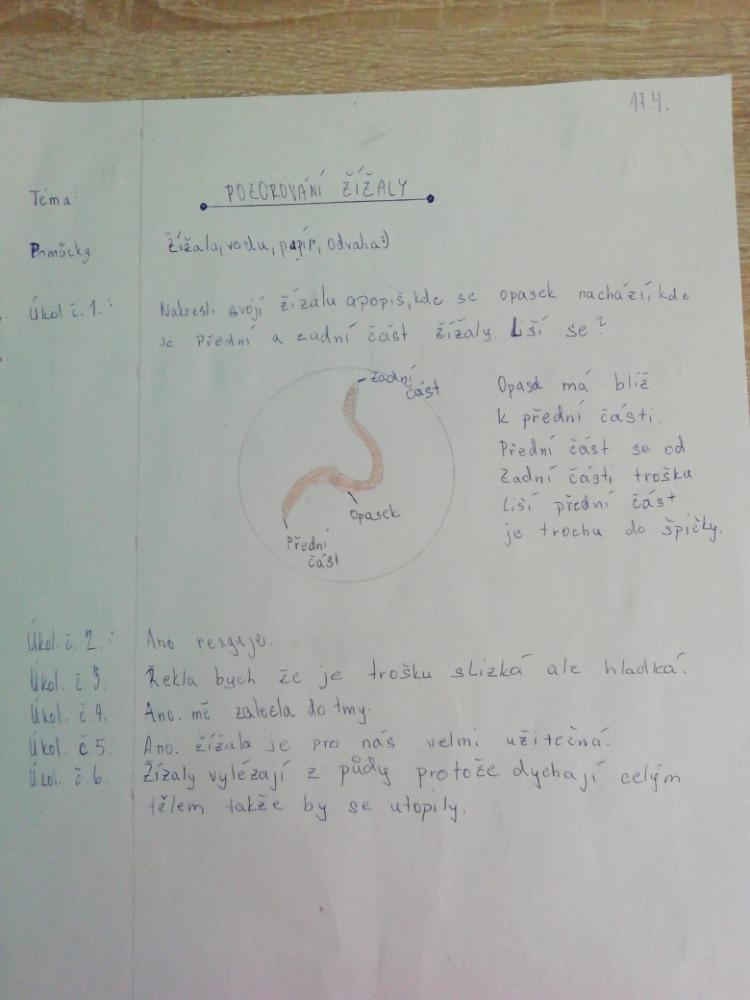 17.4.
Téma: POZOROVÁNÍ ŽÍŽALY
Pomůcky žížalu, vodu, papír, odvaha:)
Úkol č. 1.: Nakresli svojí žížalu a popiš, kde se opasek nachází, kde
je Přední a zadní část žížaly. Liší se?
zadní
část
Opasek
Přední
část
Opasek má blíž
k přední části.
Přední část se od
Zadní části trošku
Liší přední část
je trochu do špičky.
Úkol. č. 2.: Ano reaguje.
Úkol. č. 3. Řekla bych že je trošku slizká ale hladká.
Úkol. č. 4. Ano. mě zalezla do tmy.
Úkol. č. 5. Ano. žížala je pro nás velmi užitečná.
Úkol. č. 6. Žížaly vylézají z půdy protože dychají celým
tělem takže by se utopily.